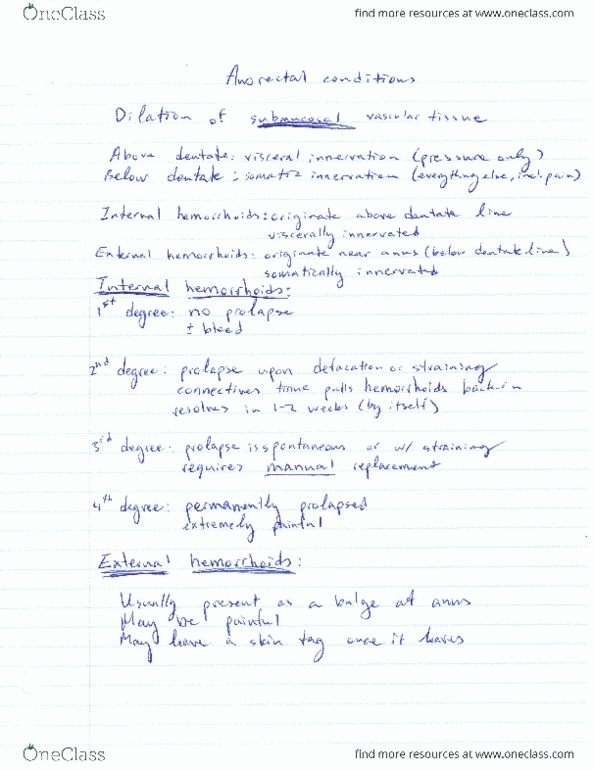 OneClass
find more resources at www.oneclass.com
Anorectal conditions
Dilation of submucosal vascular tissue
Above dentate: visceral innervation (pressure only)
Below dentate: somatic innervation (everything else, incl. pain)
Internal hemorrhoids: originate above dentate line
viscerally innervated
External hemorrhoids: originate near anus (below dentate line)
somatically innervated
Internal hemorrhoids:
1st degree: no prolapse
± bleed
2nd degree: prolapse upon defacation or straining
connectives tissue pulls hemorrhoids back in
resolves in 1-2 weeks (by itself)
3rd degree: prolapse is spontaneous or w/ straining
requires manual replacement
4th degree: permanently prolapsed
extremely painful
External hemorrhoids:
Usually present as a bulge at anus
May be painful
May leave a skin tag once it leaves
OneClass
find more resources at www.oneclass.com